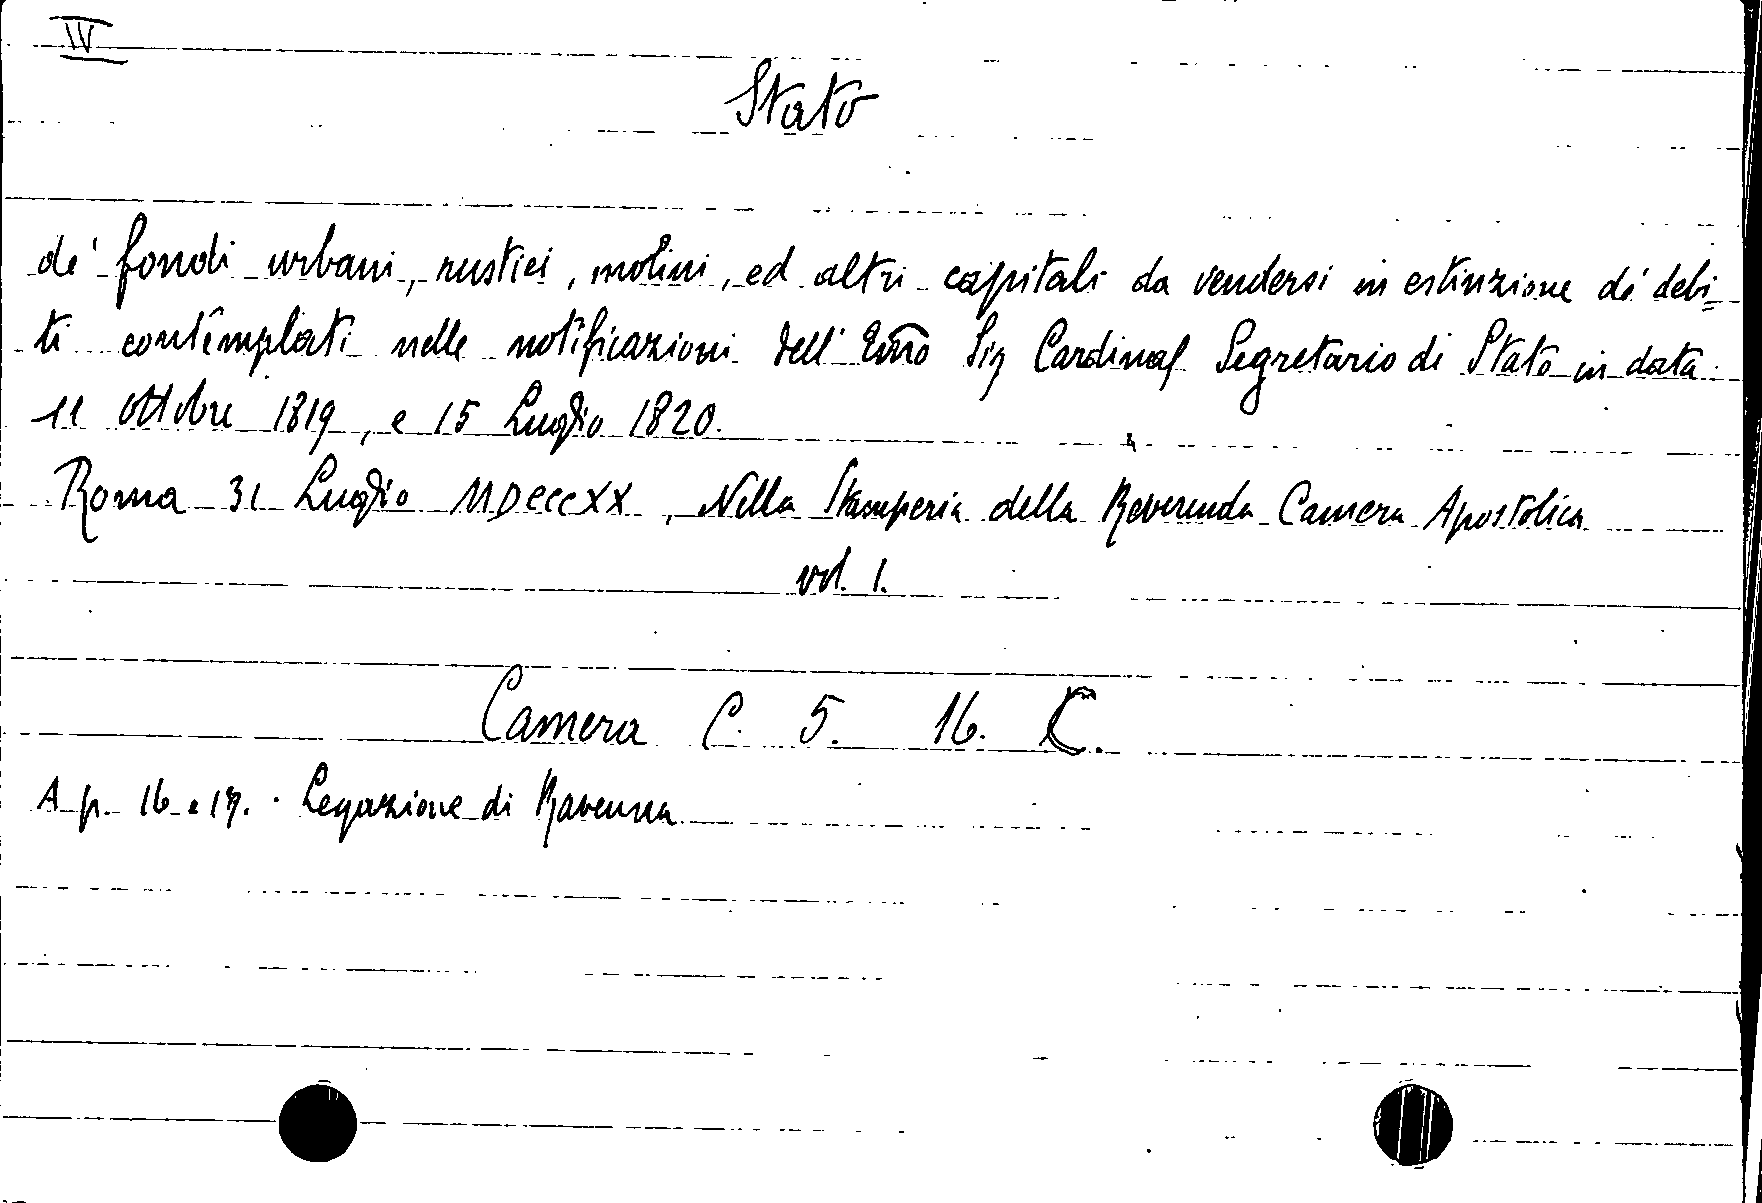 IV
Stato
de' fondi urbani, rustici, molini, ed altri capitali da vendersi in estinzione de' debi=
ti contemplati nelle notificazioni dell' Emo Sig Cardinal Segretario di Stato in data
11 ottobre 1819, e 15 Luglio 1820.
Roma 31 Luglio MDCCCXX, Nella Stamperia della Reverenda Camera Apostolica
vol. 1.
Camera C. 5. 16. C.
A p. 16 e 17. · Legazione di Ravenna